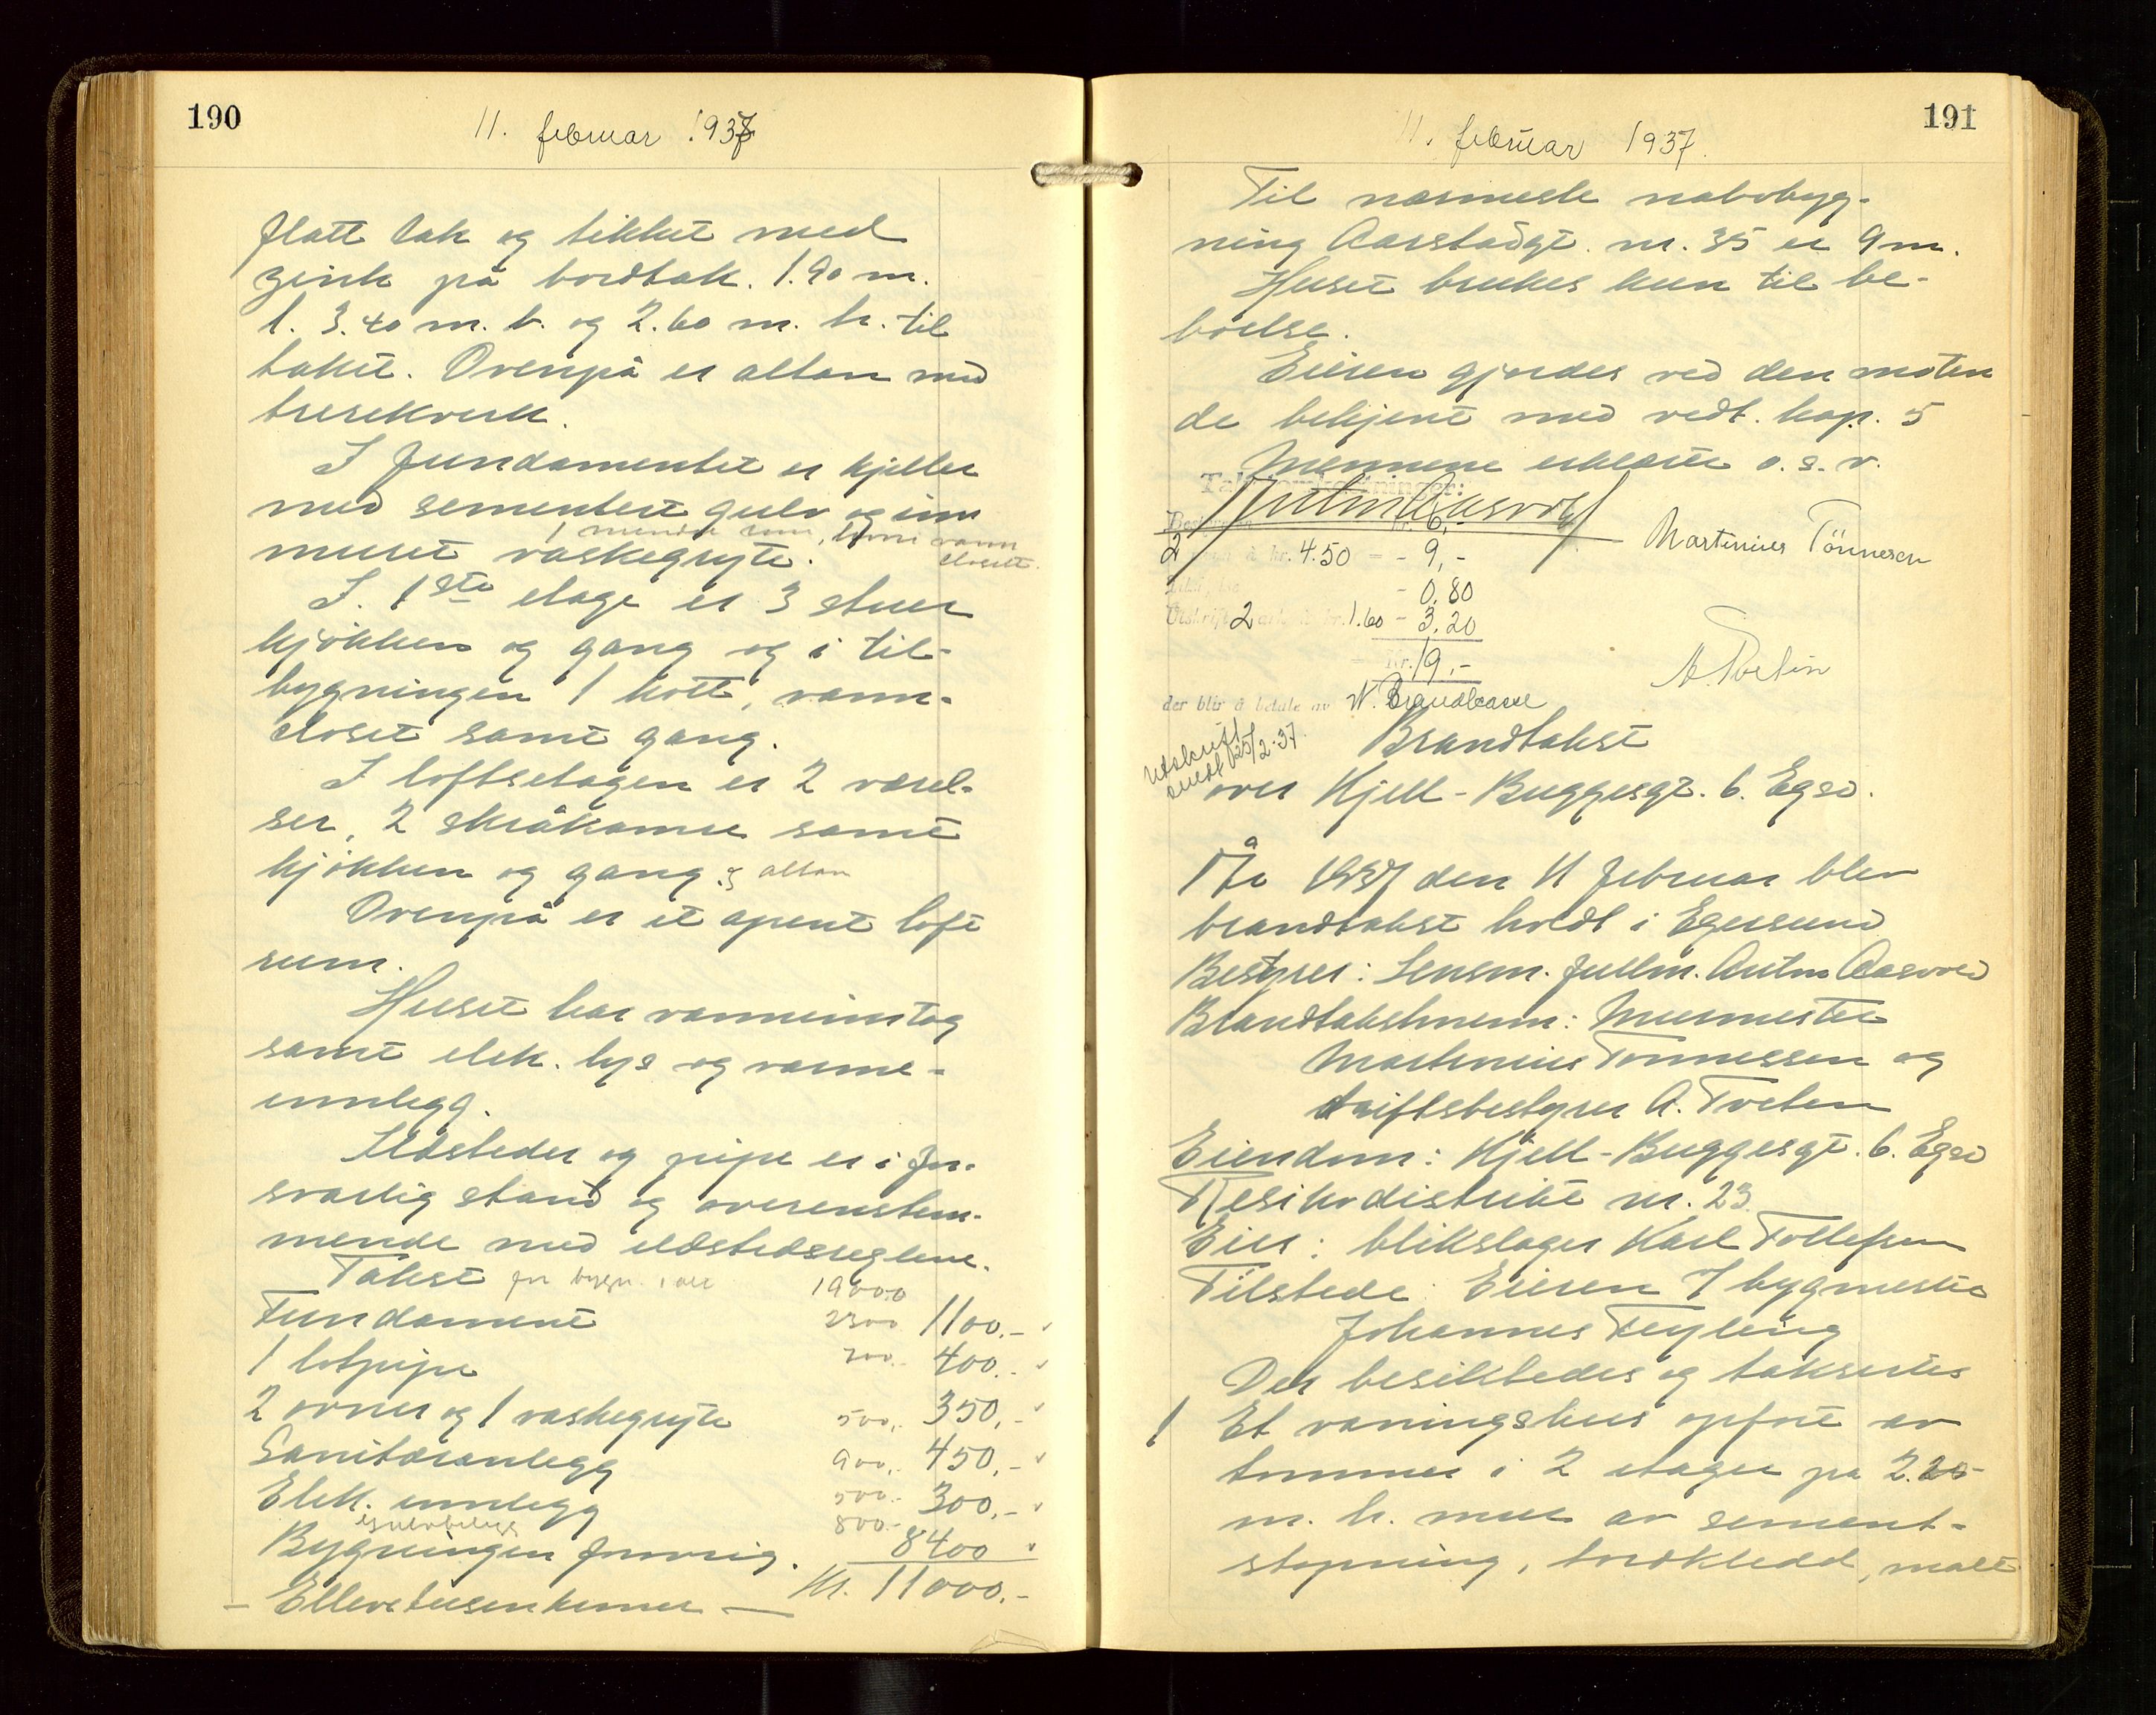 190
11. februar 1937
flatt tak og tekket med
zink på bordtak. 1.90 m.
l. 3.40 m. b. og 2.60 m. h. til
taket. Ovenpå er altan med
trerekverk.
I fundamentet er kjeller
med sementert gulv og inn
muret vaskegryte.
closett.
I. 1ste etage er 3 stuer
kjøkken og gang og i til-
bygningen 1 kott, vann-
closet samt gang.
I loftsetagen er 2 værel-
ser, 2 skråkamre samt
kjøkken og gang og altan
Ovenpå er et åpent loft
rum.
Huset har vanninntag
samt elek. lys og varme-
innlegg.
Ildsteder og pipe er i for-
svarlig stand og overenstem-
mende med ildstedsreglene.
Takst for bygn. i alt 19000
Fundament 2300 1100.-
1 løtpipe 700.- 400.-
2 ovner og 1 vaskegryte 500,- 350,-
Sanitæranlegg 900,- 450,-
Elek. innlegg 500.- 300,-
Gulvbelegg 800.-
Bygningen forøvrig. 8400
- Ellevetusenkroner - Kr. 11000.-
191
11. februar 1937.
Til nærmeste nabobyg-
ning Aarstadgt. nr. 35 er 9 m.
Huset brukes kun til be-
boelse.
Eieren gjordes ved den møten
de bekjent med vedt. kap. 5
Mennene erklærte o. s. v.
Takstomkostninger:
Anton Aasvold
Bestyreren kr. 6,-
Martinius Tönnesen
2 à kr. 4.50 - 9,-
- 0.80
Utskrift 2 ark à kr. 1.60 - 3.20
Kr. 19,-
A. Tveten
der blir å betale av N. Brandkasse
Utskrift
sendt 25/2.37
Brandtakst
over Kjell-Buggesgt. 6. Egsd.
År 1937 den 11 februar blev
brandtakst holdt i Egersund
Bestyrer: Lensm. fullm. Anton Aasvold
Brandtakstmenn: Murmester
Martinius Tønnessen og
driftsbestyrer A. Tveten
Eiendom: Kjell-Buggesgt. 6. Egsd
Risikodistrikt nr. 23.
Eier: blikslager Karl Tollefsen
Tilstede: Eieren v/ bygmester
Johannes Feyling
Der besiktedes og taksertes
1 Et vaningshus opført av
tømmer i 2 etager på 2.20
m. h. mur av sement-
støpning, bordkledd, malt